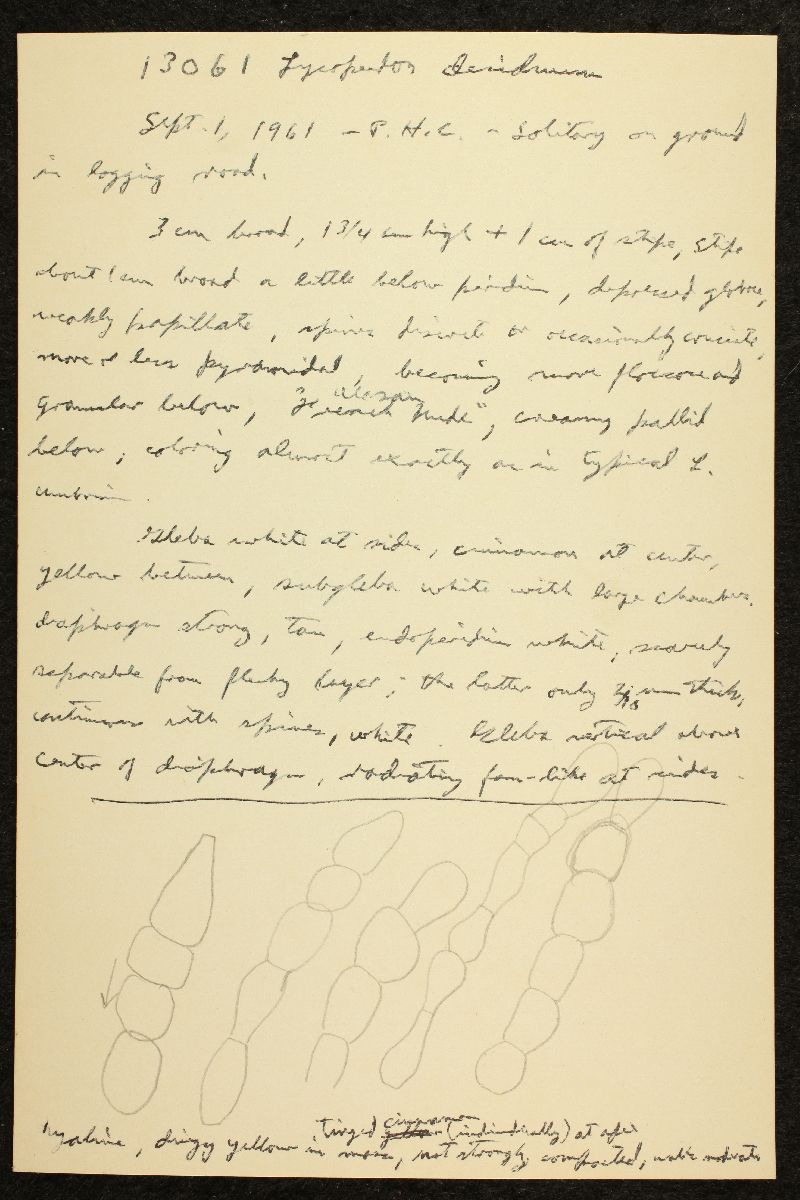 13061 Lycoperdon
Sept. 1, 1961 - P. H. C. - Solitary on ground
in logging road.
3 cm broad, 1 3/4 cm high + 1 cm of stipe, stipe
about 1 cm broad a little below peridium, depressed globose,
weakly papillate, spines discrete or occasionally connate,
more or less pyramidal, becoming more floccose and
granular below, "French Nude", creamy pallid
below; coloring almost exactly as in typical L.
umbrinum.
Gleba white at sides, cinnamon at center,
yellow between, subgleba white with large chambers,
diaphragm strong, tan, endoperidium white, scarcely
separable from fleshy layer; the latter only mm thick,
continuous with spines, white. Gleba vertical above
center of diaphragm, radiating fan-like at sides.
tinged cinnamon (individually) at apex
hyaline, dingy yellow in mass, not strongly compacted, walls